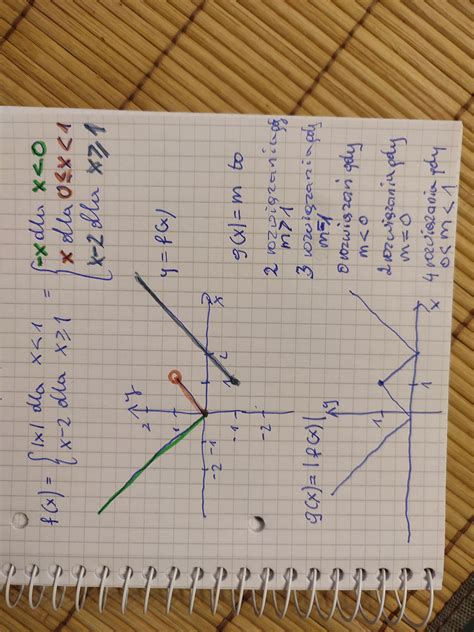 f(x) = { |x| dla x<1
x-2 dla x≥1
= { -x dla x<0
x dla 0≤x<1
x-2 dla x≥1
y
2
1
-2 -1
1 2 x
-1
-2
y=f(x)
g(x)=|f(x)|
y
1
1
x
g(x)=m to
2 rozwiązania gdy
m>1
3 rozwiązania gdy
m=1
0 rozwiązań gdy
m<0
2 rozwiązania gdy
m=0
4 rozwiązania gdy
0<m<1